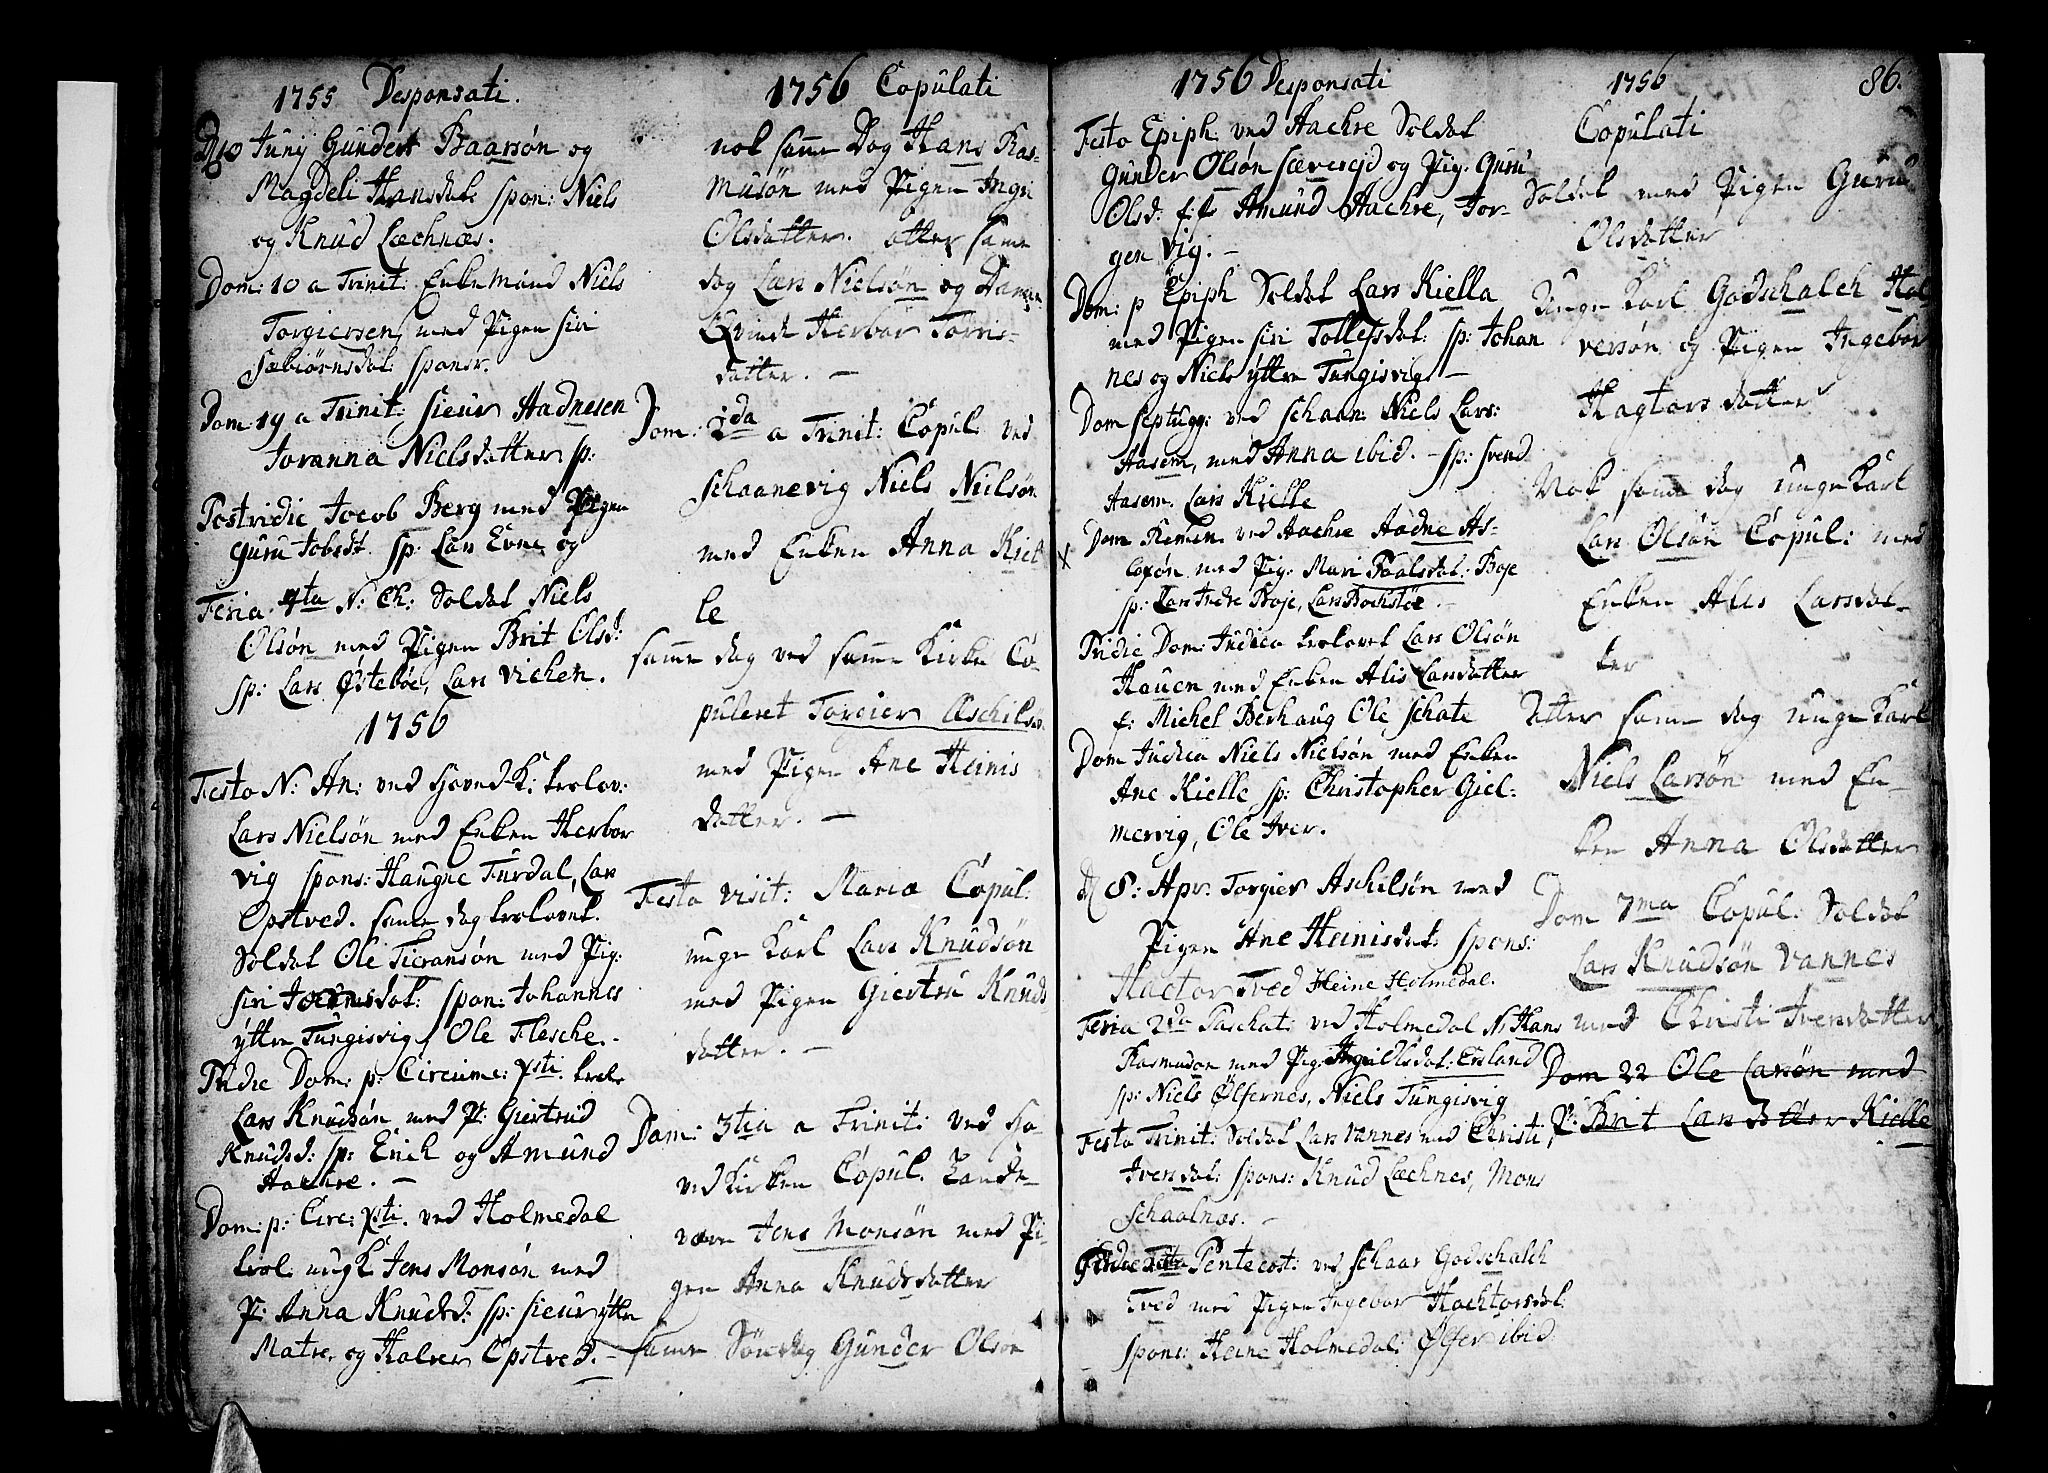 1755 Desponsati.
D 10 Junÿ Gunder Baarsøn og
Magdeli Hansdat: spon: Niels
og Knud Læchnæs.
Dom: 10 a Trinit: Enkemand Niels
Torgiersen, med Pigen siri
Sæbiørnsdat: sponsr.
Dom: 19 a Trinit: sieur Aadnesen
Joranna Nielsdatter sp:
Postridie Jocob Berg med Pigen
Guru Jobsdt. sp: Lars Evne og
Feria 4ta N: Ch: Soldat Niels
Olsøn med Pigen Brit Olsd:
sp: Lars Østebøe, Lars Vichen.
1756
Festo N: An: ved Hoved K: trolov:
Lars Nielsøn med Enken Herbor
vig spons: Haugne Furdal, Lars
Opstved. same dag trolovet.
Soldat Ole Tieransøn med Pig:
siri dat: spon: Johannes
ÿttre Tungisvig, Ole Flesche.
Pridie Dom: p: Circume: Xsti. trol:
Lars Knudsøn med P: Giertrud
Knudsd: sp: Erich og Amund
Aachre. —
Dom: p: Circ: Xsti. ved Holmedal
trol: ung K Jens Monsøn med
P: Anna Knudsd: sp: sieur ÿttre
Matre, og Halver Opstved. —
1756 Copulati
nok same Dag Hans Ras-
musøn med Pigen Inge
Olsdatter. atter same
dag Lars Nielsøn og
Qvinde Herbor Torris-
datter. —
Dom: 2da a Trinit: Copul: ved
Schaanevig Niels Nielsøn
med Enken Anna Kiel
le
same dag ved same Kirke Co-
puleret Torgier Aschilsøn
med Pigen Ane Heinis
datter. —
Festo Visit: Mariæ Copul:
unge Karl Lars Knudsøn
med Pigen Giertru Knuds
datter. —
Dom: 3tia a Trinit: ved Ho-
vedKirken Copul. Lande-
værn Jens Monsøn med Pi-
gen Anna Knudsdatter
same Søndag Gunder Olsøn
1756 Desponsati
Festo Epiph: ved Aachre Soldat
Gunder Olsøn Sævereid og Pig: Guru
Olsd: f: f: Amund Aachre, Tor-
gen Vig. —
Dom: p Epiph Soldat Lars Kiella
med Pigen siri Tollefsdat: sp: Johan
nes og Niels ÿttre Tungisvig —
Dom Septugg: ved Schaan: Niels Lars:
Aasem, med Anna ibid. — sp: Svend
Aasem. Lars Kielle
X Dom Remin: ved Aachre Aadne As-
med Pig: Mari Paalsdat: Boje
sp: Lars Indre Boje, Lars Bochstøe. —
Pridie Dom: Judica trolovet Lars Olsøn
Hauen med Enken Alis Larsdatter
f: Michel Berhaug Ole Schate
Dom Judica Niels Nielsøn med Enken
Ane Kielle sp: Christopher Giel-
mervig, Ole Iver.
D 8: Apr. Torgier Aschilsøn med
Pigen Ane Heinisdat: spons:
Hactor Tved Heine Holmedal.
Feria 2da Paschat: ved Holmedal N: Hans
Rasmusøn med Pig: Inge Olsdat: Ersland
sp: Niels Ølfernes, Niels Tungisvig
Festo Trinit: Soldat Lars Vannes med Christi
Iversdat: spons: Knud Læchnes, Mons
Schaalnæs. —
Pentecost: ved Schaar Godschalch
Tved med Pigen Ingebor Hachtorsdat:
spons: Heine Holmedal: Ølfer ibid
1756 86.
Copulati
Soldat med Pigen Guru
Olsdatter
Unge Karl Godschalch Hal
versøn og Pigen Ingebor
Hagtors datter
Nok same dag unge Karl
Lars Olsøn Copul: med
Enken Alis Larsdat-
ter
Atter same dag unge Karl
Niels Larsøn med En-
ken Anna Olsdatter
Dom 7ma Copul: Soldat
Lars Knudsøn Vannes
med Christi Iversdatter
Dom 22 Ole Larsøn med
P: Brit Larsdatter Kielle